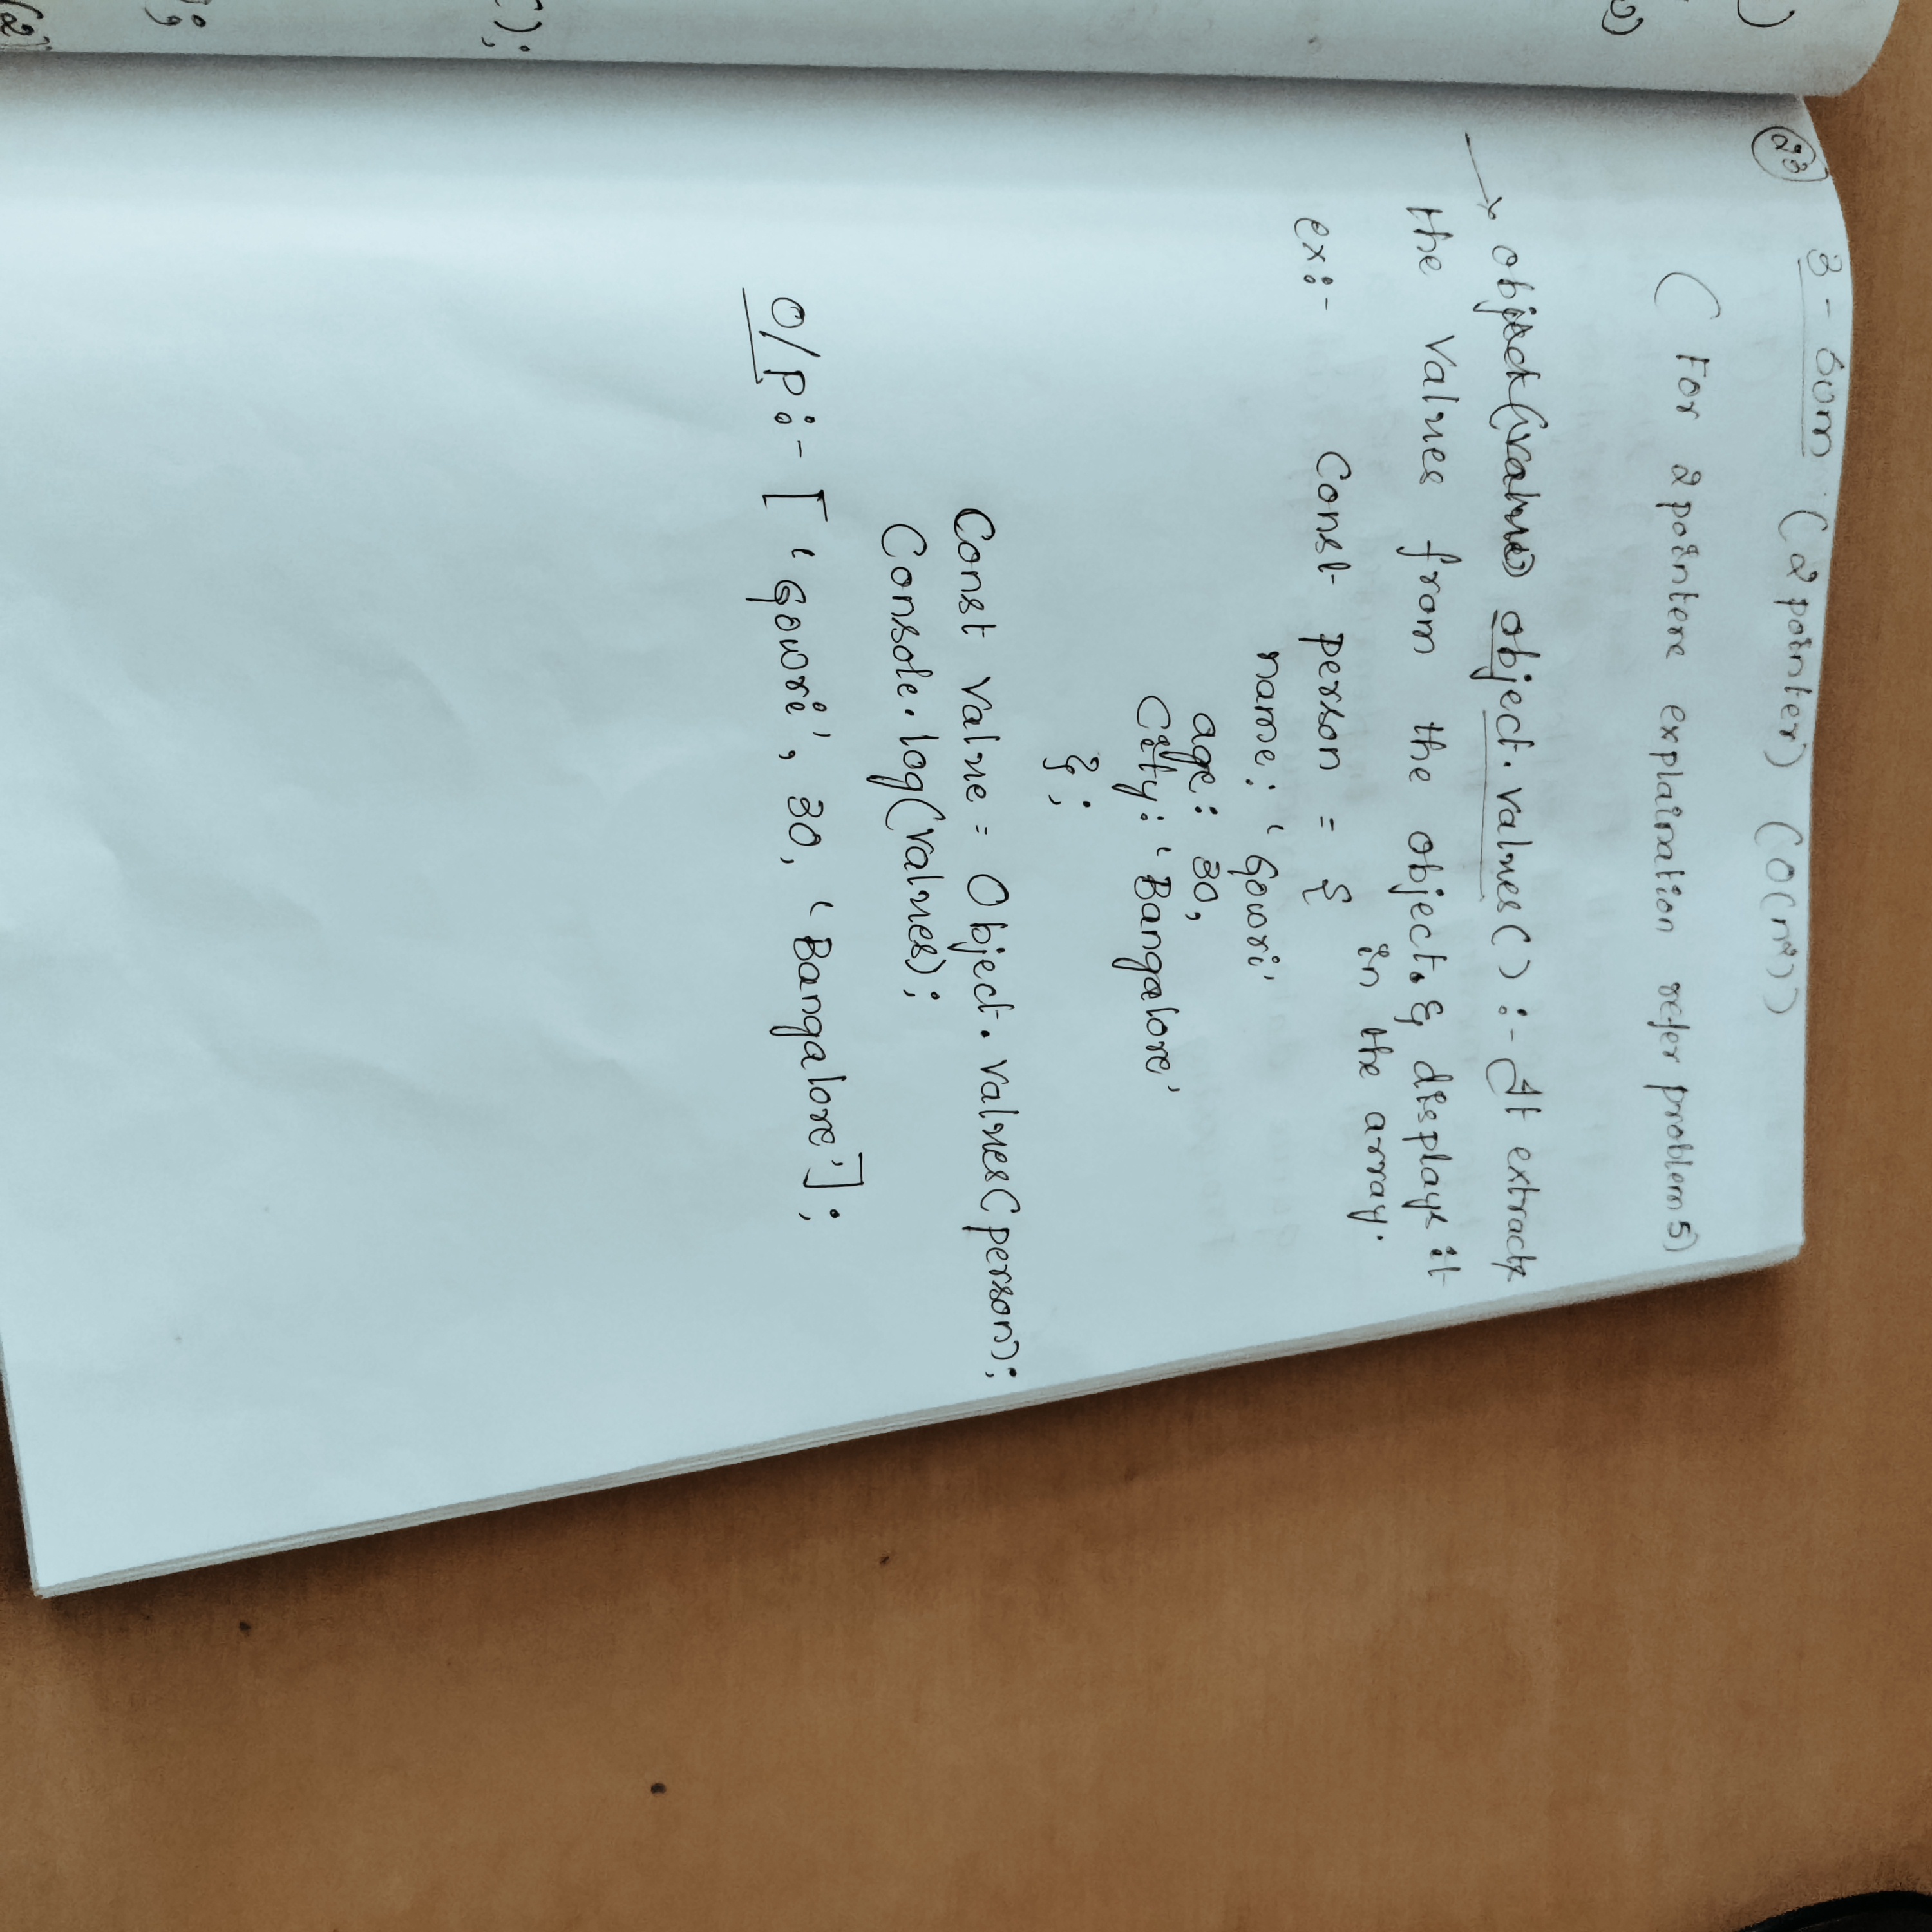 23 3 - Sum (2 pointer) (O(n²))
( For 2 pointere explaination refer problem 5)
→ object. values() :- It extracts
the values from the object. & displays it
in the array.
ex:- Const person = {
name: 'Gowri',
age: 30,
City: 'Bangalore'
};
Const value = Object. values(person);
Console.log(values);
O/P:- ['Gowri', 30, 'Bangalore'];